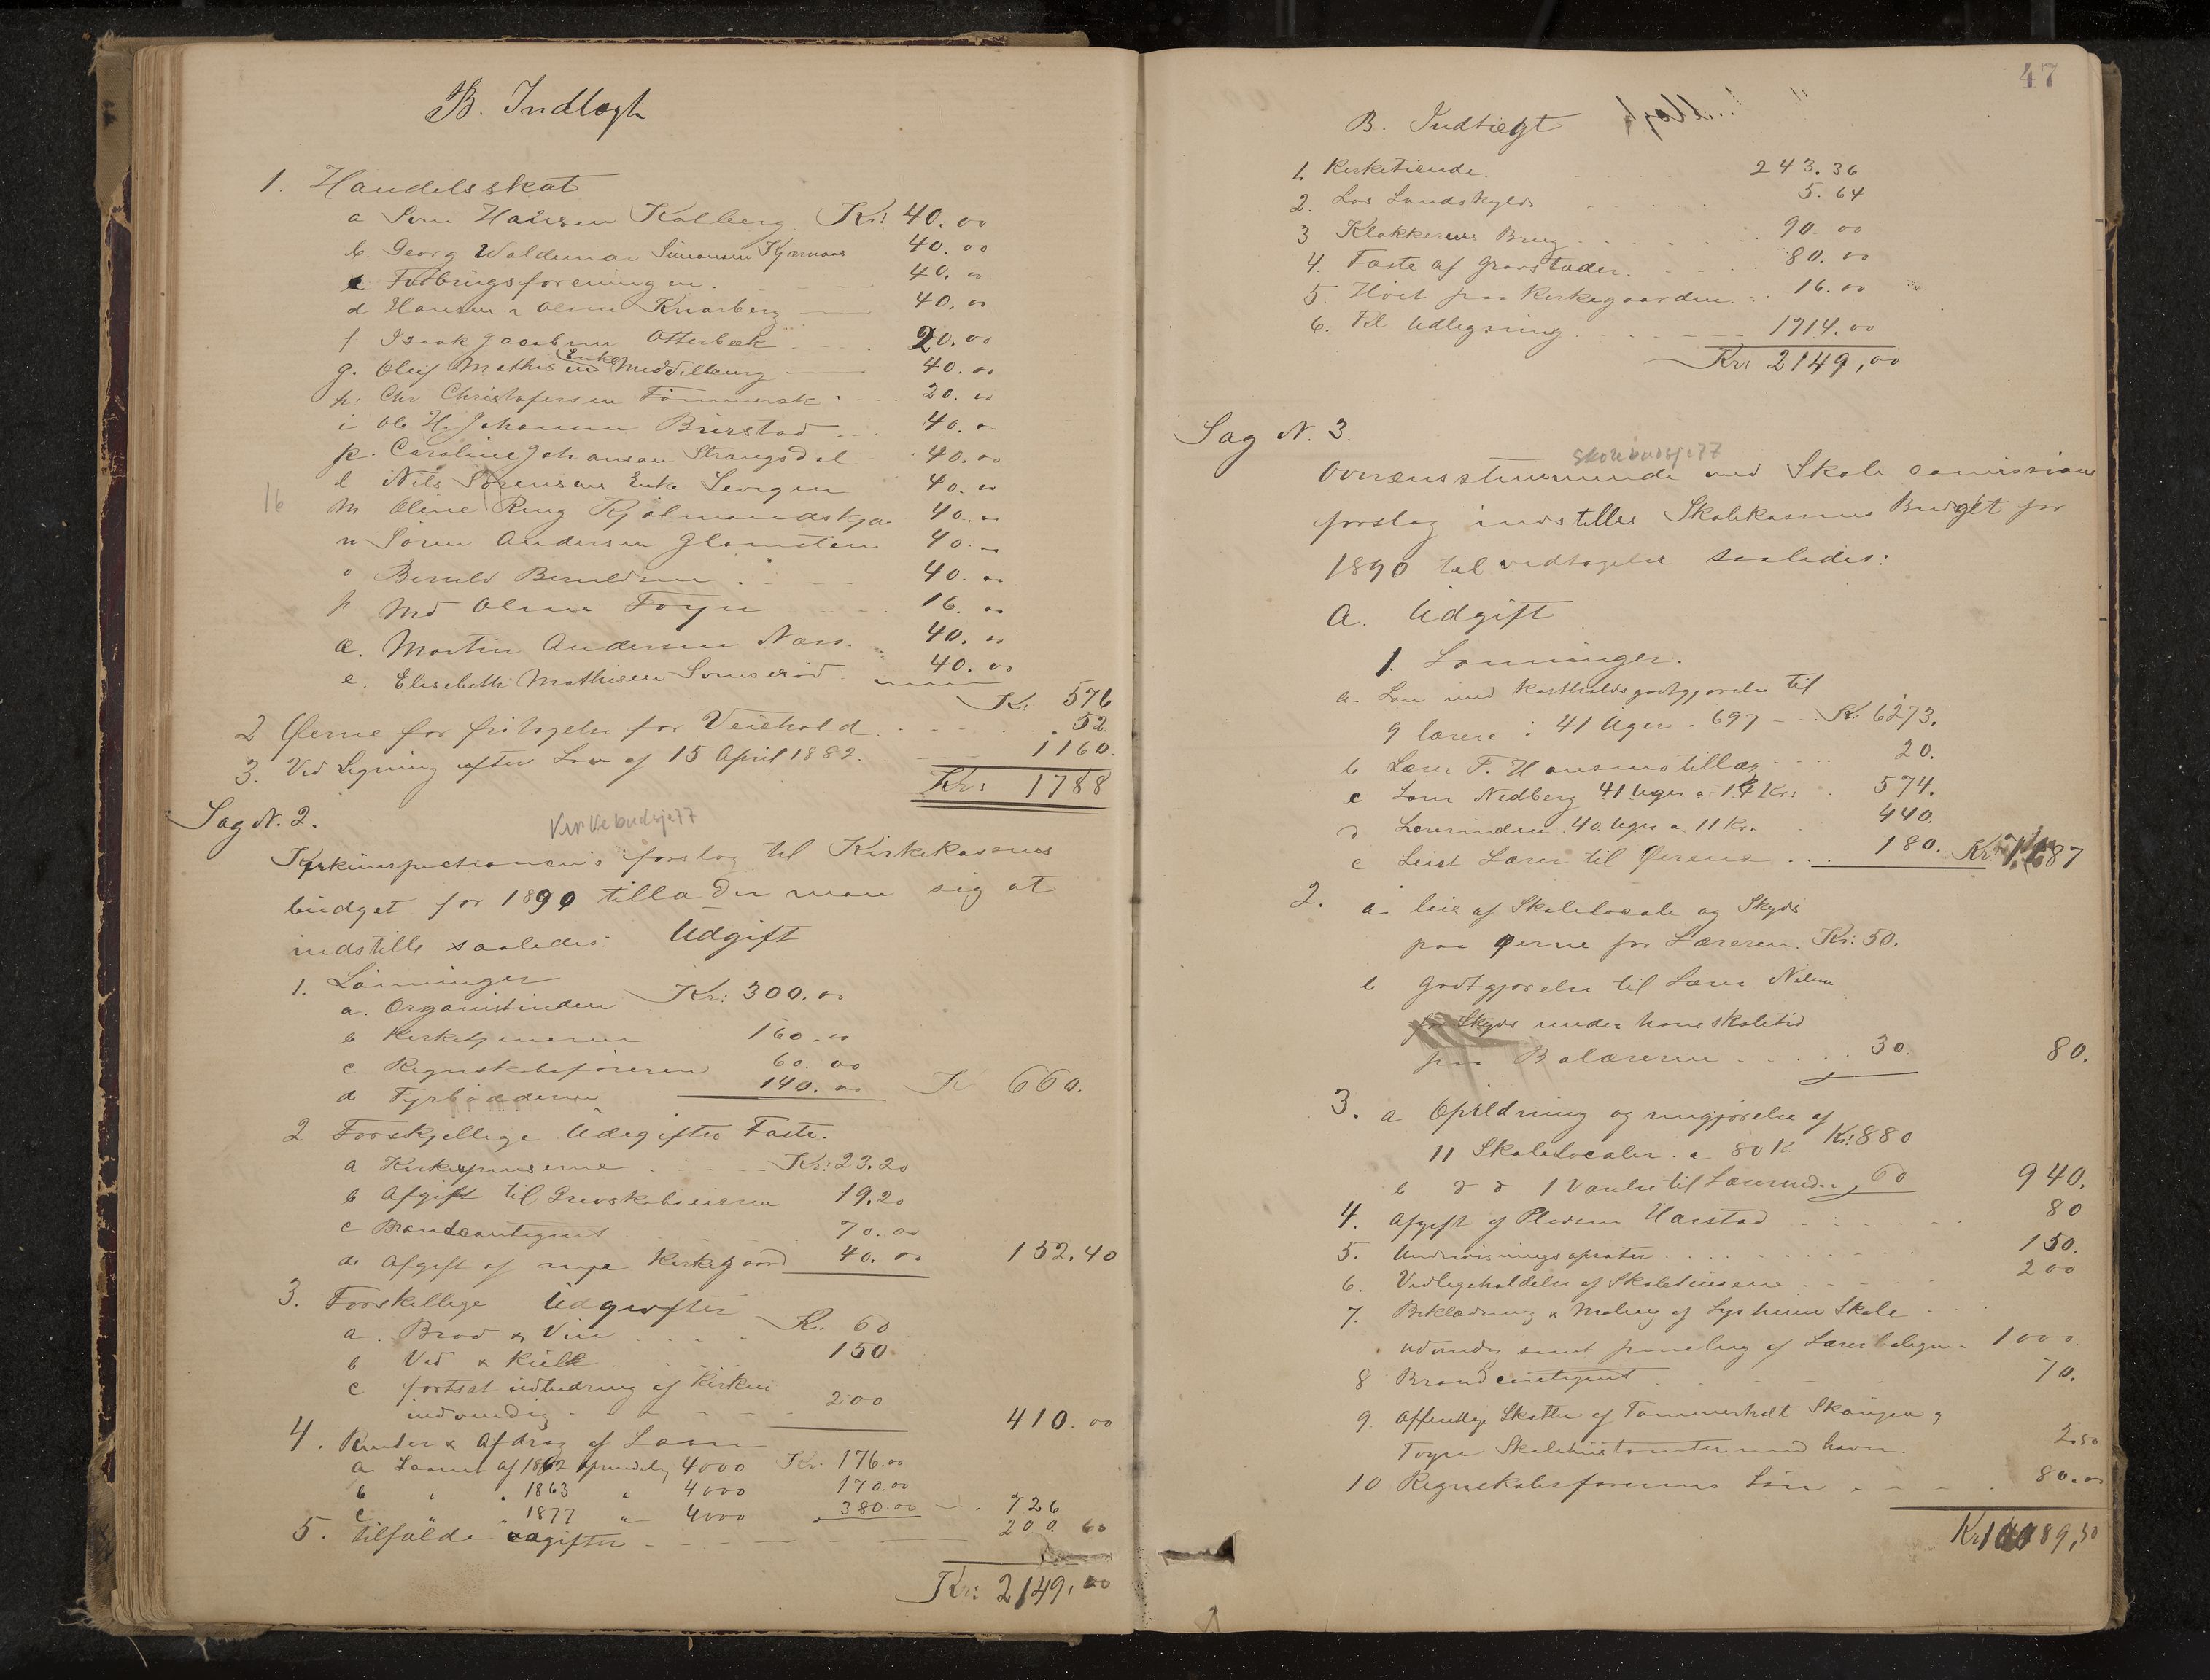 B. Indtægt
1. Handelsskat
a Hansen Kolberg Kr: 40.00
b. Georg Waldemar Simonsen Kjærnaas 40.00
c Forbrugsforeningen. 40.00
d Hansen & Olsen Knarberg 40.00
f Isaak Jacobsen Otterbæk 20.00
g. Oluf Mathisens Enke Meddelborg 40.00
h. Chr Christofersen 20.00
i Ole H. Johannsen 40.00
k. Caroline Johansen Strengsdal 40.00
l Nils Sørensens Enke 40.00
16 m Oline Ring 40.00
n Søren Andersen Glomsten 40.00
o Bernld Bernldsen 40.00
p Md Olsen Føyn 16.00
Q. Martin Andersen Næs. 40.00
e. Elisebeth Mathisen 40.00
Kr 576
2 Øerne for fritagelse for Veiehold 52.
3. Ved Ligning efter Lov af 15 April 1882. 1160.
Kr: 1788
Sag N. 2.
Kirkebudsjett
Kirkeinspectionens forslag til Kirkekassens
budget for 1890 tillader man sig at
indstille saaledes: Udgift
1. Lønninger
a. Organistinden Kr: 300.00
b Kirketjeneren 160.00
c Regnskabsføreren 60.00
d Fyrbøderen 140.00 Kr 660.
2 Forskjellige Udgifter Faste.
a Kr: 23.20
b Afgift til Grevskabseieren 19.20
c Brandcontigent 70.00
d. Afgift af nye Kirkegaard 40.00 152.40
3. Forskellige Udgifter
a. Brød & Vin K. 60
b Ved & Kull 150
c fortsat indredning af Kirken
indvendig 200
410.00
4. Renter & Afdrag af Laan
a Laanet af 1862 oprindelig 4000 Kr. 176.00
b " " 1863 " 4000 170.00
c " " 1877 " 4000 380.00 726
5. tilfælde udgifter 200.60
Kr: 2149,00
47
B. Indtiegt
1. Kirketiende. 243.36
2. Løs Landskyld 5.64
3 Klokkerens Brug 90.00
4. Fæste af Gravstæder. 80.00
5. Høiet paa Kirkegaarden. 16.00
6. Til Udligning 1714.00
Kr: 2149,00
Sag N. 3.
Skolebudsjett
Overensstemmende med Skole comissions
forslag indstilles Skolekassens Budget for
1890 til vedtagelse saaledes:
A. Udgift
1. Lønninger.
a. Løn med Kostholdsgodtgjørelse til
9 lærere i 41 Uger - 697 Kr: 6273.
b Lærer F. Hansens tillæg 20.
c Lærer Nedberg 41 Uger a 14 Kr: 574.
d Lærerinden 40 Uger a 11 Kr. 440.
e Leiet Lærer til Øerene 180. Kr. 7487
2. a leie af Skolelocale og Skyds
paa Øerne for Læreren. Kr: 50.
b Godtgjørelse til Lærer Nilsen
for Skyds under hans skoletid
paa Bolærerne 30. 80.
3. a Opildning og rengjørelse af
11 Skolelocaler a 80 K Kr: 880
b d d 1 Værelse til Lærerinden 60 940.
4. Afgift af Pladsen Harstad 80
5. Undervisningsaprater 150.
6. Vedligeholdelse af Skolehusene 200
7. Beklædning & Maling af Skole
udvendig samt paneling af Lærerboligen 1000.
8 Brandcontigent 70.
9. Offentlige Skatter af Tømmerholt Skougen og
Føyn Skolehustomter med havn. 2.50
10 Regnskabsførerens Løn 80.00
Kr 10489,50